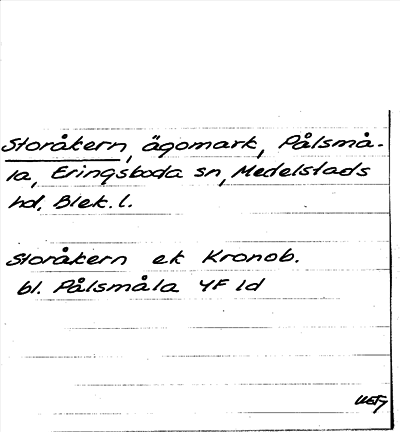 Storåkern, ägomark, Pålsmå-
la, Eringsboda sn, Medelstads
hd, Blek. l.
Storåkern ek Kronob.
bl. Pålsmåla 4F ld